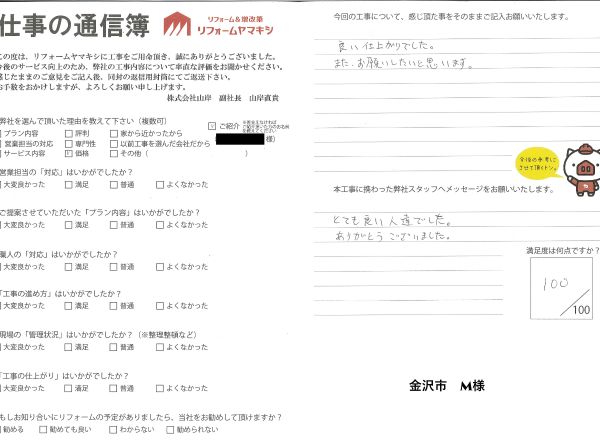 仕事の通信簿
リフォーム&増改築
リフォームヤマキシ
の度は、リフォームヤマキシに工事をご用命頂き、誠にありがとうございました。
後のサービス向上のため、弊社の工事内容について率直な評価をお聞かせください。
じたままのご意見をご記入後、同封の返信用封筒にてご返送下さい。
手数をおかけしますが、よろしくお願い申し上げます。
株式会社山岸 副社長 山岸直貴
弊社を選んで頂いた理由を教えて下さい(複数可)
プラン内容 □評判 □家から近かったから
営業担当の対応 □専門性 □以前工事を選んだ会社だから
サービス内容 ☑価格 □その他( )
☑ご紹介
様)
営業担当の「対応」はいかがでしたか?
大変良かった □満足 □普通 □よくなかった
ご提案させていただいた「プラン内容」はいかがでしたか?
大変良かった □満足 □普通 □よくなかった
職人の「対応」はいかがでしたか?
大変良かった □満足 □普通 □よくなかった
「工事の進め方」はいかがでしたか?
大変良かった □満足 □普通 □よくなかった
現場の「管理状況」はいかがでしたか?(※整理整頓など)
大変良かった □満足 □普通 □よくなかった
「工事の仕上がり」はいかがでしたか?
大変良かった □満足 □普通 □よくなかった
もしお知り合いにリフォームの予定がありましたら、当社をお勧めして頂けますか?
勧める □勧めても良い □わからない □勧められない
今回の工事について、感じ頂た事をそのままご記入お願いいたします。
良い仕上がりでした。
また、お願いしたいと思います。
今後の参考に
させて頂くトン。
本工事に携わった弊社スタッフへメッセージをお願いいたします。
とても良い人達でした。
ありがとうございました。
満足度は何点ですか?
100
/100
金沢市 M様